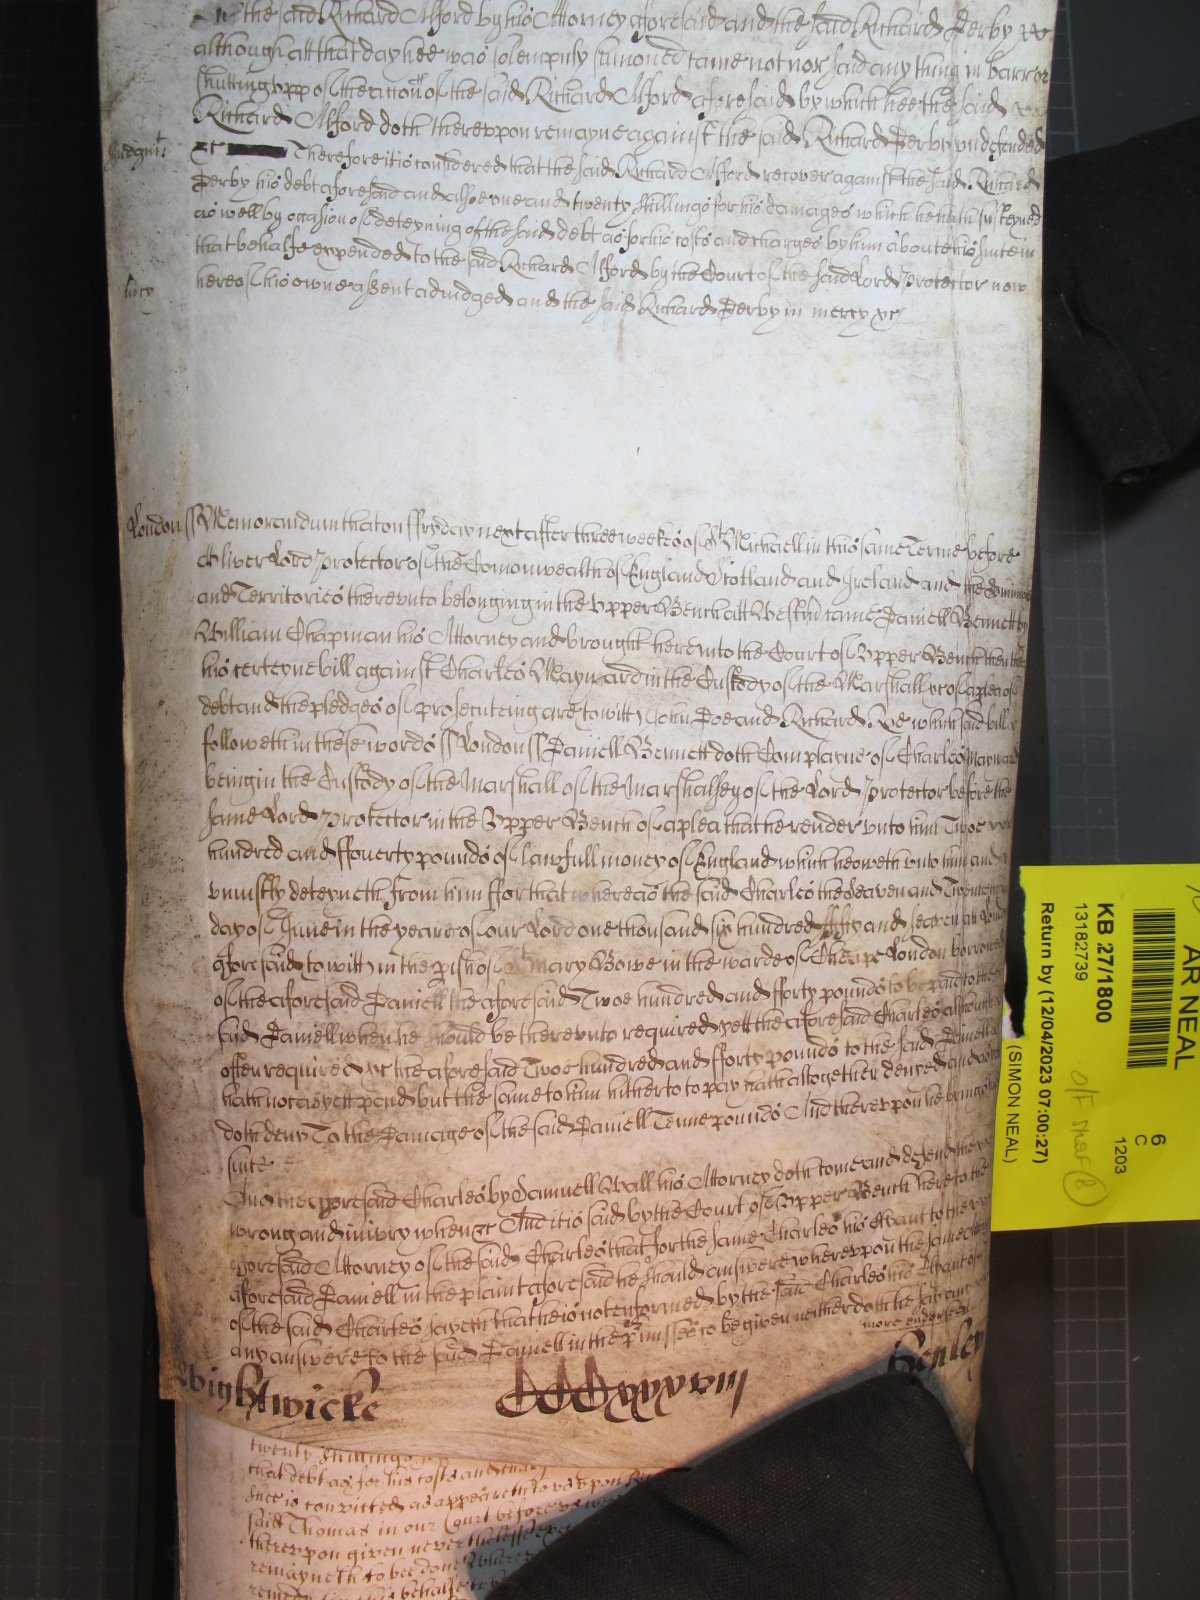 the said Richard Alford by his Attorney aforesaid and the said Richard Derby
although att that day hee was solempnly sumoned came not nor said any thing in barr or
Richard Alford aforesaid by which hee the said
Richard Alford doth therevppon remayne against the said Richard Derby vndefended
&c Therefore it is considered that the said Richard Alford recover against the said Richard
Derby his debt aforesaid and alsoe one and twenty shillings for his damages which he hath susteyned
as well by occasion of deteyning of the said debt as for his costs and charges by him about his suite in
that behalfe expended to the said Richard Alford by the Court of the said Lord Protector now
here of his owne assent adiudged and the said Richard Derby in mercy &c
m̃cy
London ss Memorandum that on ffryday next after three weekes of St Michaell in this same Terme before
Oliver Lord Protector of the Comonwealth of England Scotland and Ireland and the
and Territories therevnto belonging in the Vpper Bench att Westm̃ came Daniell Bennett by
William Chapman his Attorney and brought here into the Court of Vpper Bench then
his certeyne bill against Charles Maynard in the Custody of the Marshall &c of a plea of
debt and the pledges of prosecuteing are to witt John Doe and Richard Roe which said bill
followeth in these words ss London ss Daniell Bennett doth Complayne of Charles Maynard
being in the Custody of the Marshall of the Marshalsey of the Lord Protector before the
same Lord Protector in the Vpper Bench of a plea that he render vnto him Twoe
hundred and ffouerty pounds of lawfull money of England which he oweth vnto him and
vniustly deteyneth from him ffor that whereas the said Charles the Seaven and Twentieth
day of June in the yeare of our Lord one thousand six hundred fifty and seaven att London
aforesaid to witt in the pish of St Mary Bowe in the warde of Cheape London borrowed
of the aforesaid Daniell the aforesaid Twoe hundred and fforty pounds to be paid to the
said Daniell when he should be therevnto required yett the aforesaid Charles although
often required &c the aforesaid Twoe hundred and fforty pounds to the said Daniell
hath not as yett payd but the same to him hitherto to pay hath altogether denyed and
doth deny To the Damage of the said Daniell Tenne pounds And therevpon he brings
suite
And the aforesaid Charles by Samuell Wall his Attorney doth come and defend the
wrong and iniury when &c And it is said by the Court of Vpper Bench here to the
aforesaid Attorney of the said Charles that for the same Charles his Clyant to the
aforesaid Daniell in the plaint aforesaid he should answere wherevpon the same
of the said Charles sayeth that he is not enformed by the said Charles his Clyant of
any answere to the said Daniell in the p̃misses to be given neither doth he say any
more
Wightwicke CCCxxxviij Henley
twenty shillings
that debt as for his costs and
shee is convicted as appeareth to vs vpon
said Thomas in our Court before vs
therevpon given neverthelesse
remayneth to bee done Wherevpon
AR NEAL
6
C
1203
KB 27/1800
13182739
Return by (12/04/2023 07:00:27)
(SIMON NEAL)